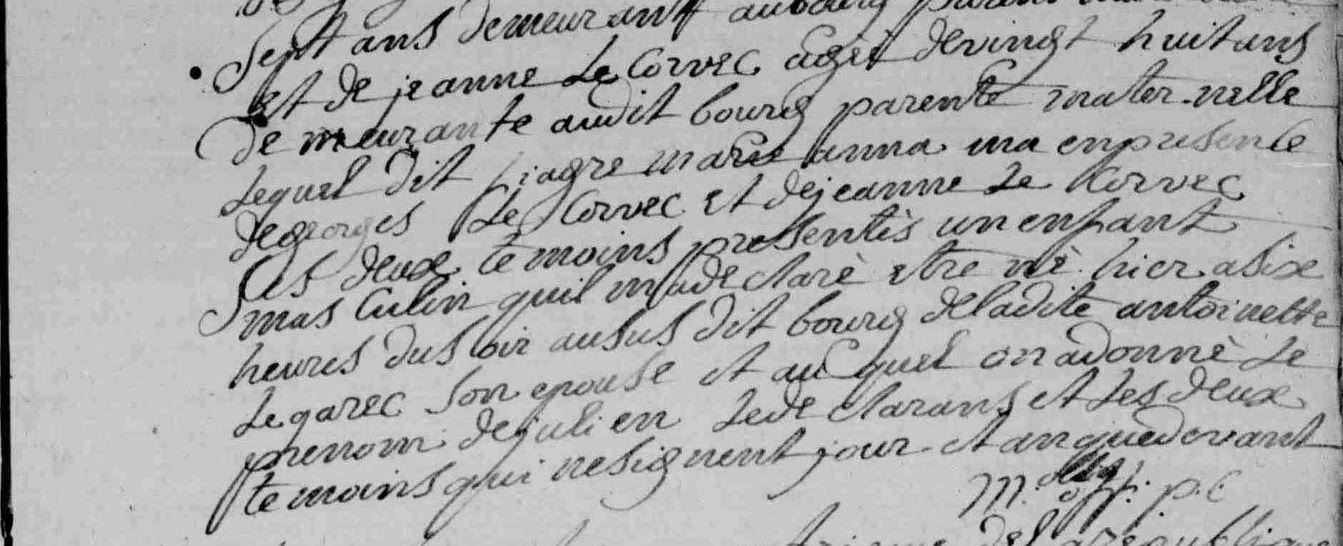 sept ans demeurant au bourg parent
et de jeanne Le Corvec agé de vingt huit ans
demeurante audit bourg parente maternelle
Lequel dit marie anna ma en presence
de georges Le Corvec et de jeanne Le Corvec
Les deux temoins presentès un enfant
masculin quil ma declarè etre nè hier a six
heures du soir au sus dit bourg de ladite antoinette
Le garec son epouse et au quel on a donnè Le
prenom de julien Le declarans et Les deux
temoins qui ne signent jour et an que devant
m. off. p. c
de la republique